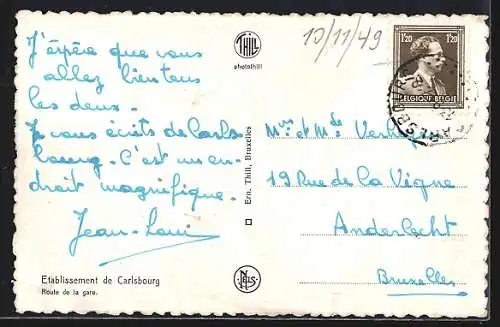 J'éspère que vous
allez bientous
les deux.
Je vous écrits de Carls
bourg. C'est un en-
droit magnifique.
Jean-Loui
Etablissement de Carlsbourg
Route de la gare.
THILL
photothill
Ern. Thill, Bruxelles
NELS
10/11/49
1F20 1F20
BELGIQUE-BELGIE
CARLSBOURG
Mr et Me
19 Rue de la Vigne
Anderlecht
Bruxelles